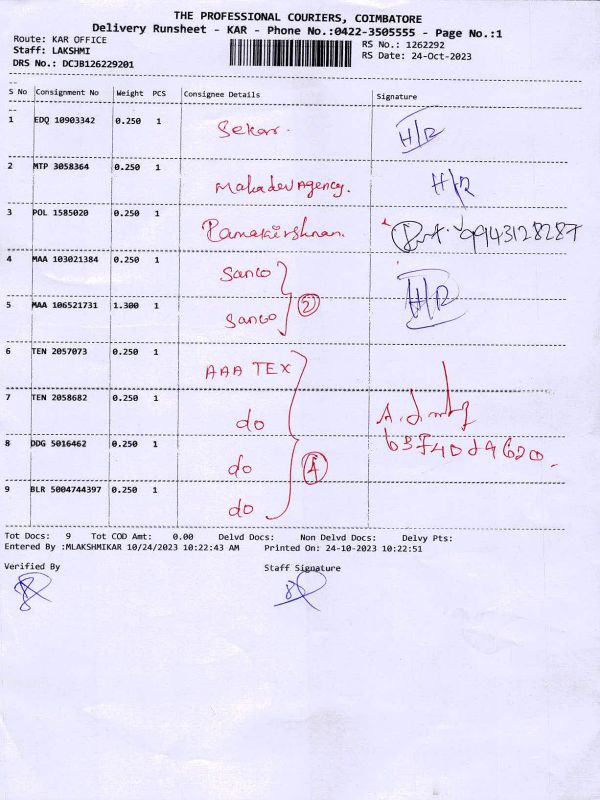 THE PROFESSIONAL COURIERS, COIMBATORE
Delivery Runsheet - KAR - Phone No.:0422-3505555 - Page No.:1
Route: KAR OFFICE RS No.: 1262292
Staff: LAKSHMI RS Date: 24-Oct-2023
DRS No.: DCJB126229201
S No Consignment No Weight PCS Consignee Details Signature
1 EDQ 10903342 0.250 1 Sekar. H/R
2 MTP 3058364 0.250 1 Mahadev Agency. H/R
3 POL 1585020 0.250 1 Ramakirshnan. 09943128287
4 MAA 103021384 0.250 1 Sanco H/R
5 MAA 106521731 1.300 1 Sanco 2
6 TEN 2057073 0.250 1 AAA TEX
7 TEN 2058682 0.250 1 do
8 DDG 5016462 0.250 1 do 4
9 BLR 5004744397 0.250 1 do
Tot Docs: 9 Tot COD Amt: 0.00 Delvd Docs: Non Delvd Docs: Delvy Pts:
Entered By :MLAKSHMIKAR 10/24/2023 10:22:43 AM Printed On: 24-10-2023 10:22:51
Verified By Staff Signature